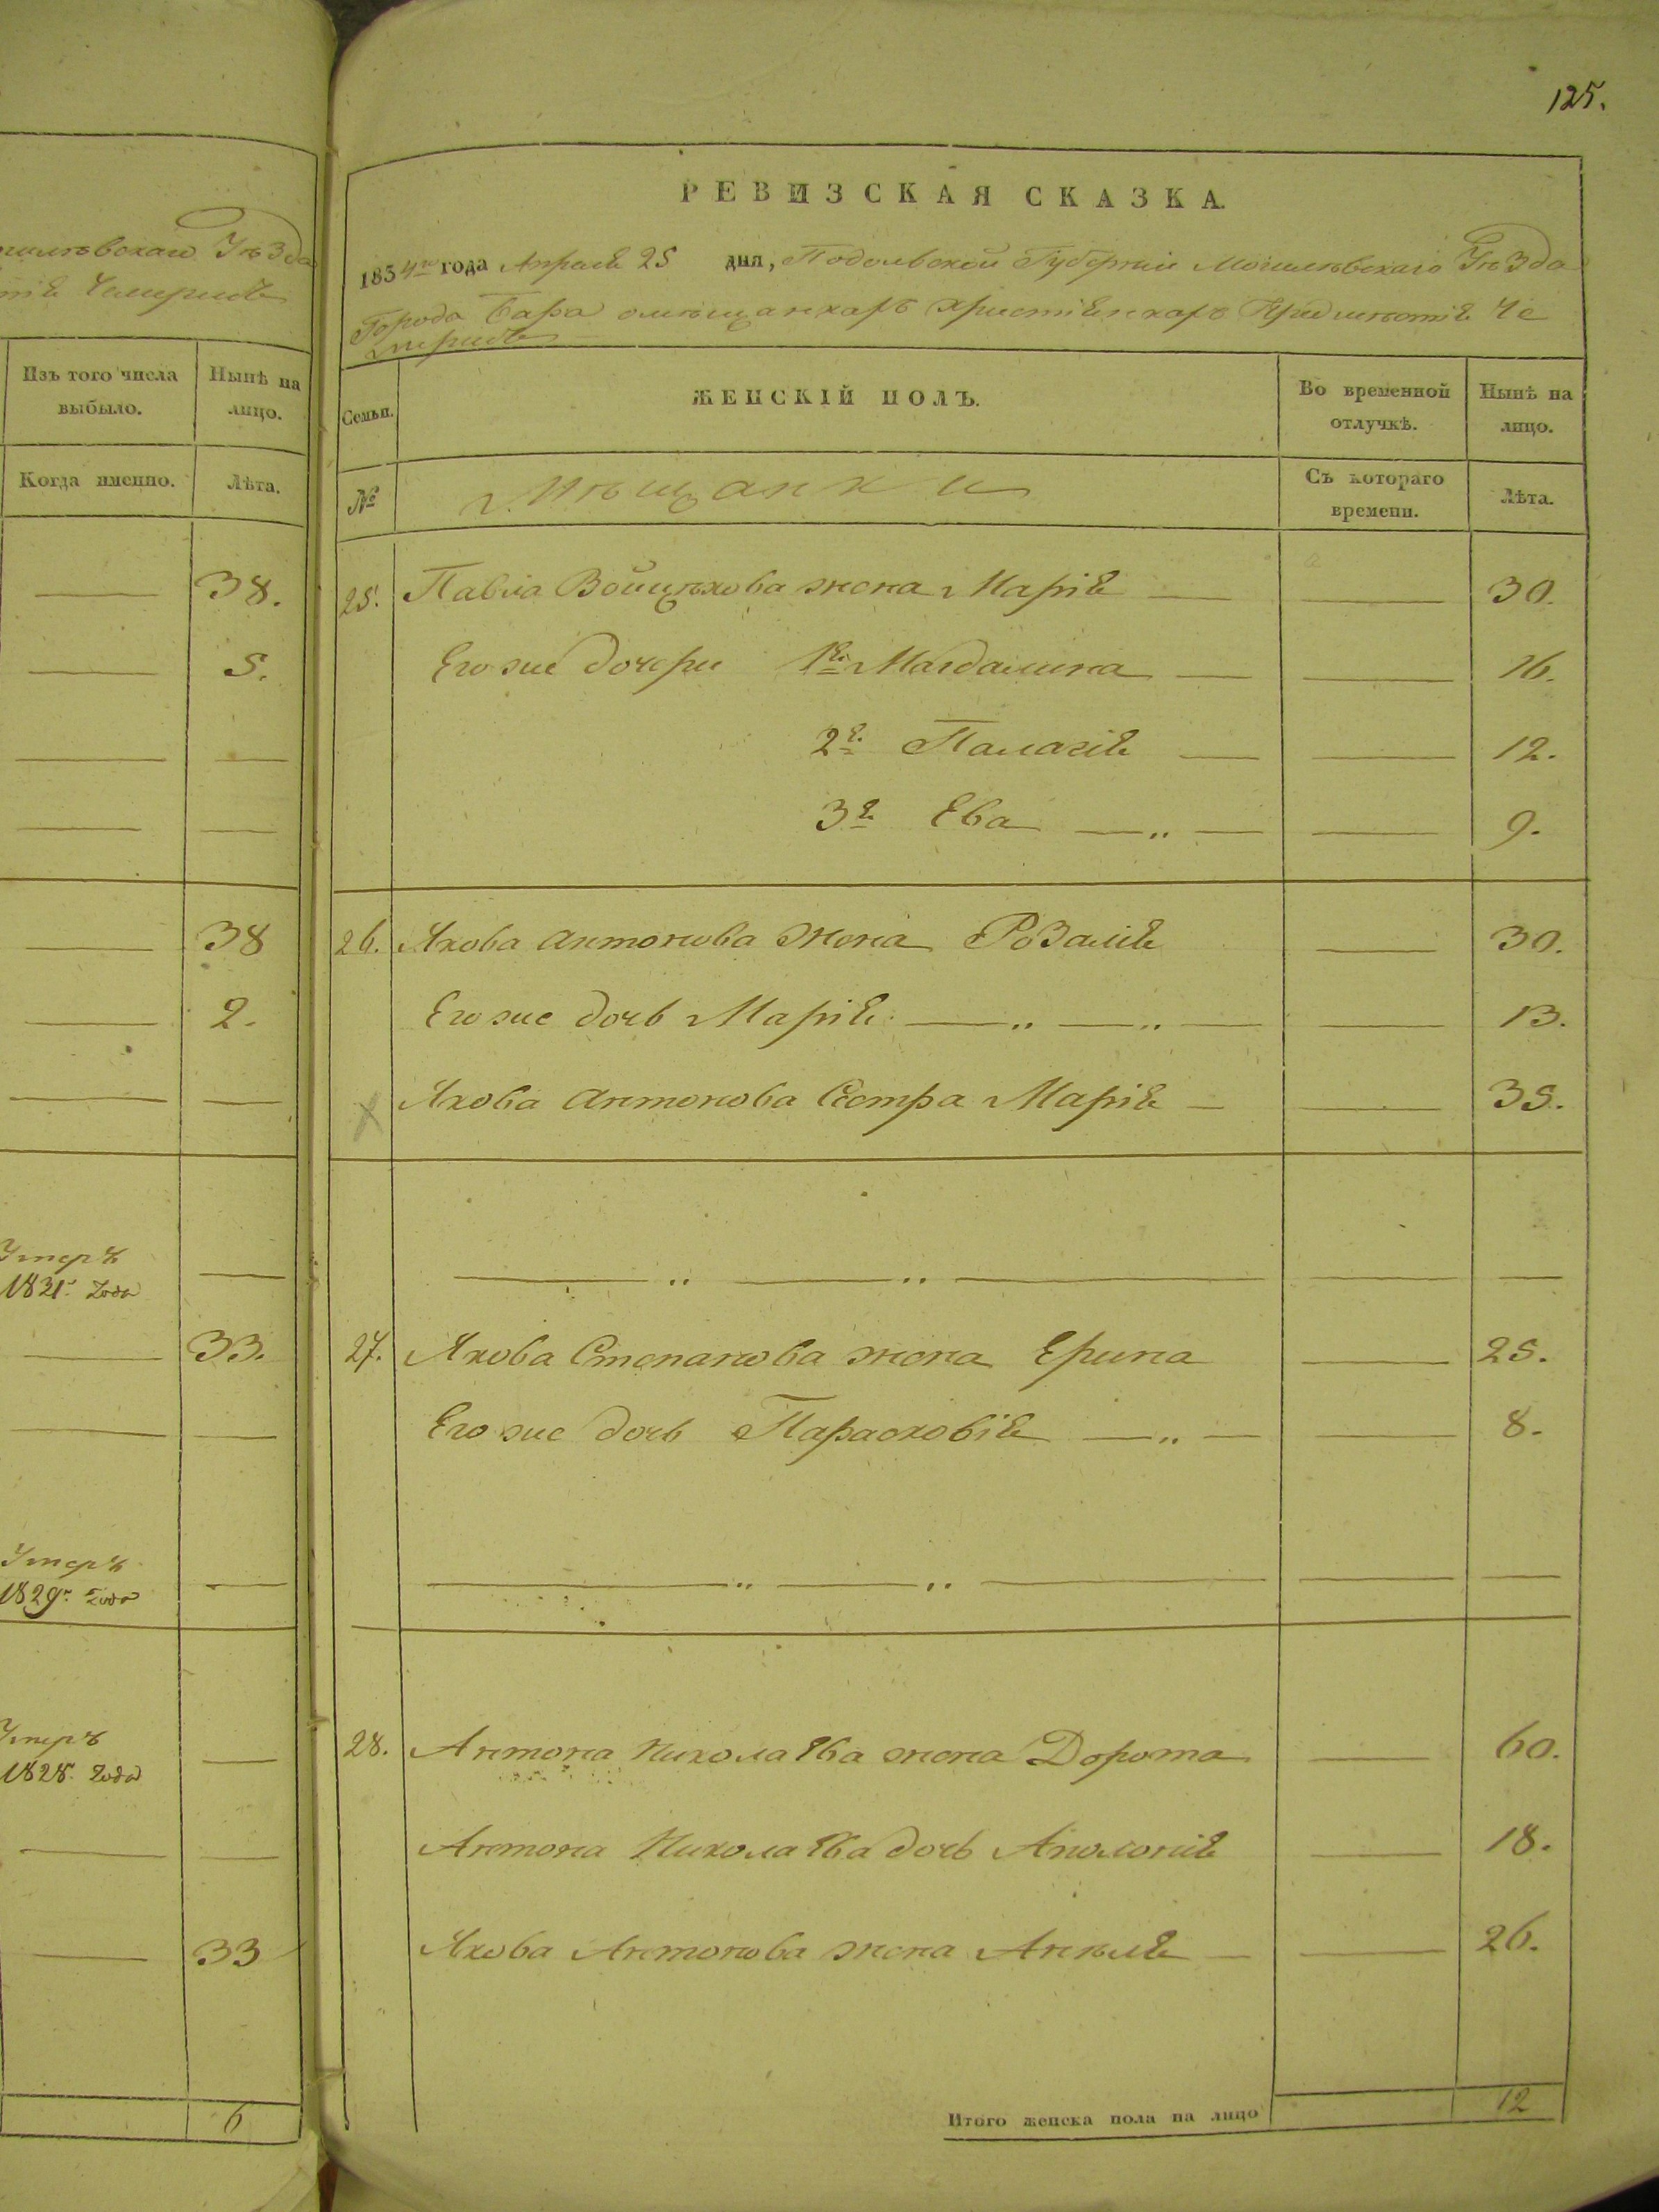 125.
уѣзда
Чемерисѣ
Изъ того числа выбыло.
Нынѣ на лицо.
Когда именно.
Лѣта.
38.
5.
38
2.
Умеръ
1831. года
33.
Умеръ
1829. года
Умеръ
1828. года
33
6
РЕВИЗСКАЯ СКАЗКА.
1834го года Апреля 25 дня, Подольской Губернии Могилѣвскаго Уѣзда
Города Бара омѣщанкахъ христіянкахъ Предмѣстія Че
мерисѣ
Семьи.
ЖЕНСКІЙ ПОЛЪ.
Во временной отлучкѣ.
Нынѣ на лицо.
№
Мѣщанки
Съ котораго времени.
Лѣта.
25. Павла Войцѣхова жена Марія — — 30.
Его же дочери 1я Магдалина — — 16.
2я Палагія — — 12.
3я Ева — „ — — 9.
26. Якова Антонова жена Розалія — 30.
Его же дочь Марія — „ — „ — — 13.
Якова Антонова Сестра Марія — — 35.
— „ — „ — — —
27. Якова Степанова жена Ерина — 25.
Его же дочь Парасковія — „ — — 8.
— „ — „ — — —
28. Антона Николаева жена Дорота — 60.
Антона Николаева дочь Аполонія — 18.
Якова Антонова жена Анѣля — — 26.
Итого женска пола на лицо 12